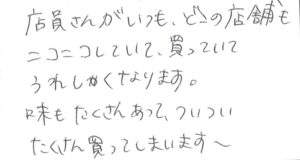 店員さんがいつも、どこの店舗も
ニコニコしていて、買っていて
うれしくなります。
味もたくさんあって、ついつい
たくさん買ってしまいます〜